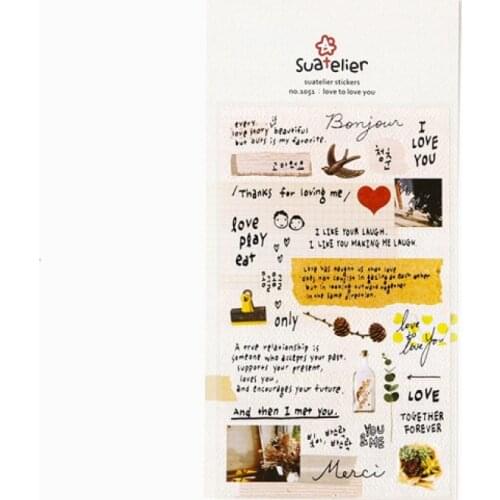 Suatelier
suatelier stickers
no.1051 : love to love you
every
love story is beautiful
but ours is my favorite.
Bonjour
I
LOVE
YOU
고마워요
청춘
/Thanks for loving me/
love
play
eat
I LIKE YOUR LAUGH.
I LIKE YOU MAKING ME LAUGH.
Love has taught us that love
does not consist in gazing at each other
but in looking outward together
in the same direction.
only
love
to love
You
A true relationship is
someone who accepts your past,
supports your present,
loves you,
and encourages your future.
And then I met you.
LOVE
TOGETHER
FOREVER
YOU
&ME
빛이, 바스락
바스락
Merci